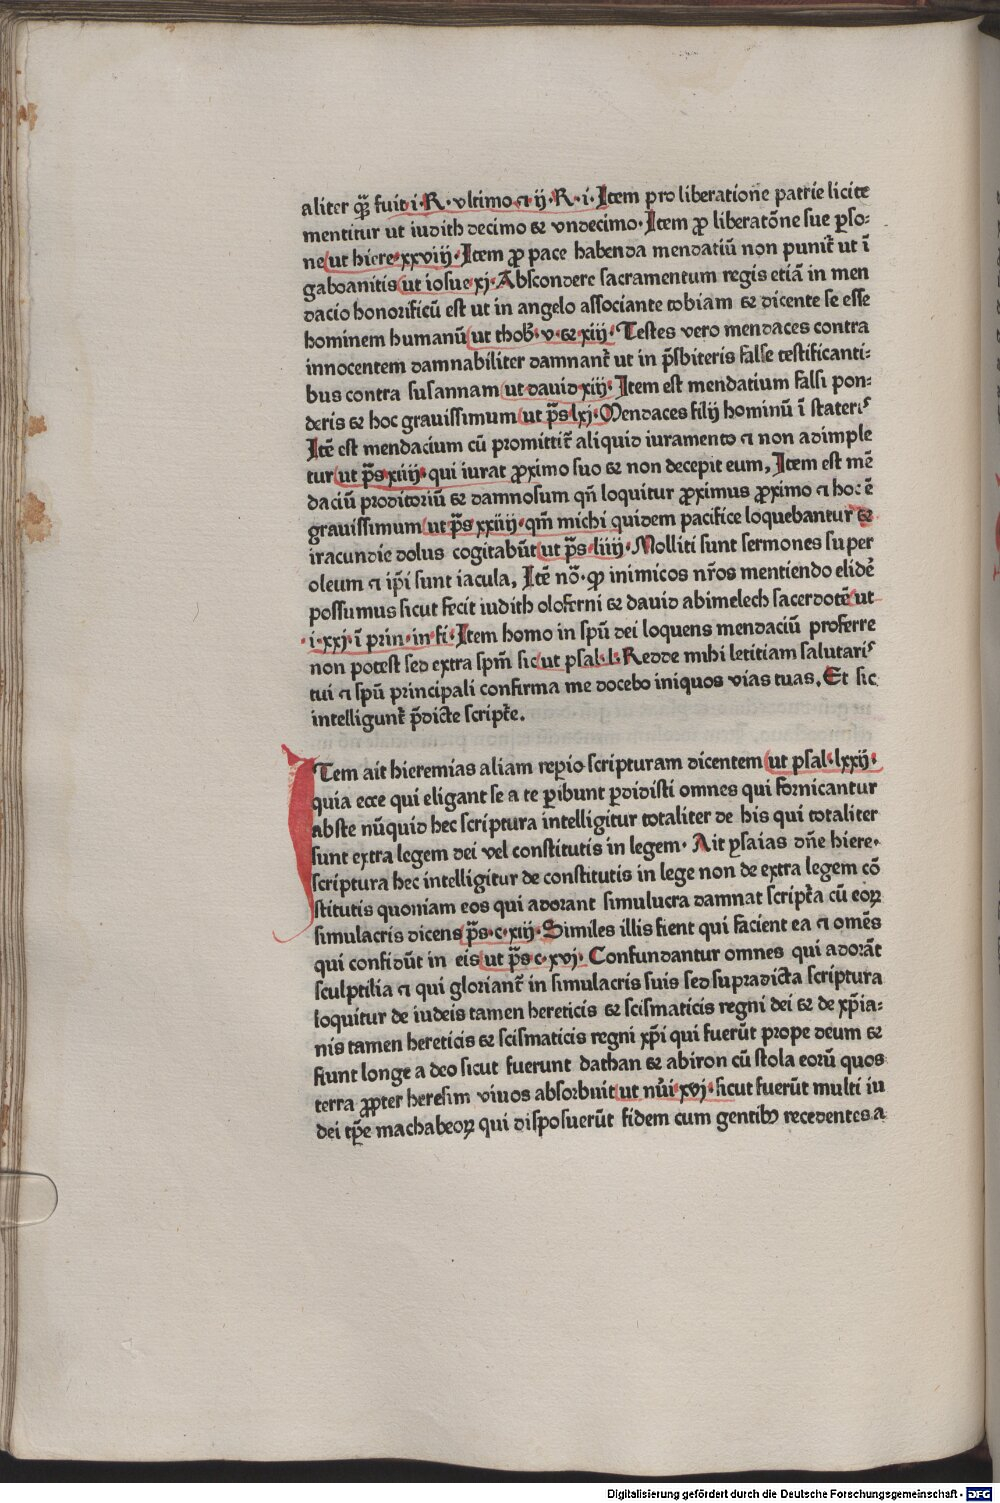 aliter qꝫ̃ fuit i·R·vltimo ⁊ ij·R·i·Item pro liberatione patrie licite
mentitur ut iudith decimo ⁊ vndecimo·Item ꝓ liberatõne sue ꝑso⸗
ne ut hiere·xxviij·Item ꝓ pace habenda mendatiũ non punit̃ ut ĩ
gabaanitis ut iosue xj·Abscondere sacramentum regis etiã in men
dacio honorificũ est ut in angelo associante tobiam ⁊ dicente se esse
hominem humanũ ut thob̃·v·⁊ xiij·Testes vero mendaces contra
innocentem damnabiliter damnant̃ ut in p̃sbiteris false testificanti⸗
bus contra susannam ut dauid xiij·Item est mendatium falsi pon⸗
deris ⁊ hoc grauissimum ut p̃s lxj·Mendaces filij hominũ ĩ stateris
Itẽ est mendacium cũ promittit̃ aliquid iuramento ⁊ non adimple
tur ut p̃s xiiij·qui iurat ꝓximo suo ⁊ non decepit eum, Item est mẽ
daciũ proditoriũ ⁊ damnosum qñ loquitur ꝓximus ꝓximo ⁊ hoc ẽ
grauissimum ut p̃s xxiiij·qm̃ michi quidem pacifice loquebantur ⁊
iracundie dolus cogitabũt ut p̃s liiij·Molliti sunt sermones super
oleum ⁊ ip̃i sunt iacula, Itẽ nõ·ꝙ inimicos nr̃os mentiendo elidẽ
possumus sicut fecit iudith oloferni ⁊ dauid abimelech sacerdotẽ ut
·i·xxj·ĩ prin·in fi·Item homo in spũ dei loquens mendaciũ proferre
non potest sed extra spm̃ sic ut psal·l·Redde mihi letitiam salutaris
tui ⁊ spũ principali confirma me docebo iniquos vias tuas, Et sic
intelligunt̃ p̃dicte script̃e.
ITem ait hieremias aliam repio scripturam dicentem ut psal·lxxij·
quia ecce qui eligant se a te ꝑibunt ꝑdidisti omnes qui fornicantur
abste nũquid hec scriptura intelligitur totaliter de his qui totaliter
sunt extra legem dei vel constitutis in legem· Ait ysaias dñe hiere·
scriptura hec intelligitur de constitutis in lege non de extra legem cõ
stitutis quoniam eos qui adorant simulucra damnat script̃a cũ eoꝝ
simulacris dicens p̃s·c·xiij·Similes illis fient qui facient ea ⁊ omẽs
qui confidũt in eis ut p̃s c·xvj·Confundantur omnes qui adorãt
sculptilia ⁊ qui gloriant̃ in simulacris suis sed supradicta scriptura
loquitur de iudeis tamen hereticis ⁊ scismaticis regni dei ⁊ de xp̃ia⸗
nis tamen hereticis ⁊ scismaticis regni xp̃i qui fuerũt prope deum ⁊
fiunt longe a deo sicut fuerunt dathan ⁊ abiron cũ stola eorũ quos
terra ꝓpter heresim viuos absorbuit ut nũi xvj·sicut fuerũt multi iu
dei tp̃e machabeoꝝ qui disposuerũt fidem cum gentibꝰ recedentes a
Digitalisierung gefördert durch die Deutsche Forschungsgemeinschaft - DFG